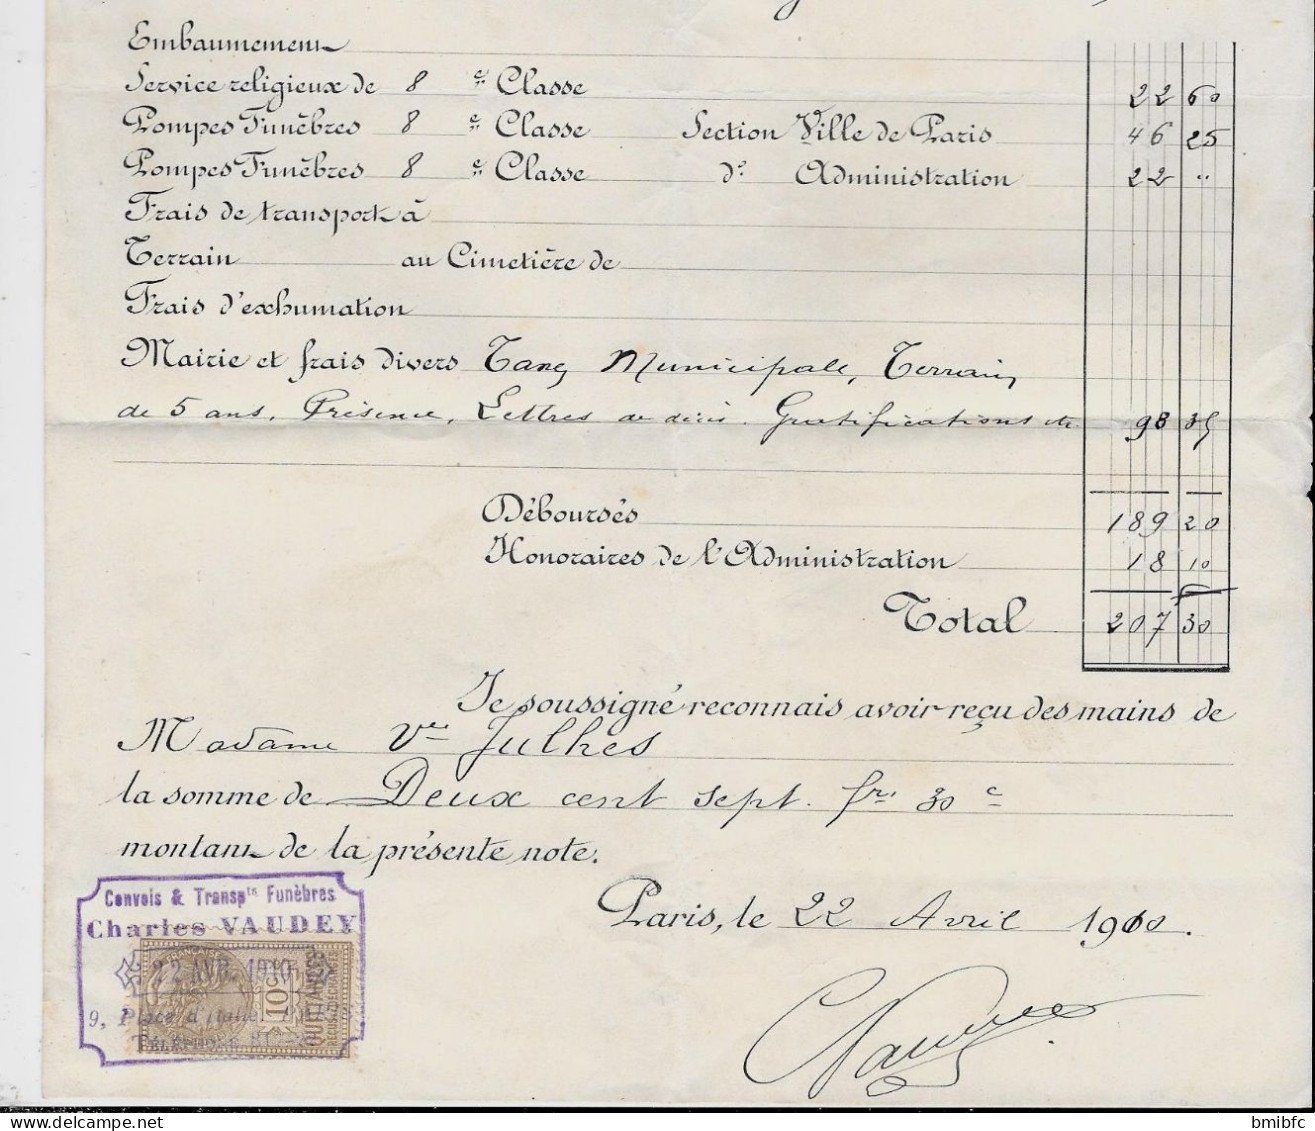 Embaumement
Service religieux de 8 e Classe 22 60
Pompes Funèbres 8 e Classe Section Ville de Paris 46 25
Pompes Funèbres 8 e Classe d° Administration 22 "
Frais de transport à
Terrain au Cimetière de
Frais d'exhumation
Mairie et frais divers Taxe Municipale, Terrain
de 5 ans, Présence, Lettres de décès. Gratifications etc 98 35
Déboursés 189 20
Honoraires de l'Administration 18 10
Total 207 30
Je soussigné reconnais avoir reçu des mains de
Madame Vve Julhes
la somme de Deux cent sept fr. 30 c
montant de la présente note.
Paris, le 22 Avril 1910.
Convois & Transpts Funèbres
Charles VAUDEY
FRANÇAISE
22 AVR 1910
10c
QUITTANCES
9, Place d'Italie
TÉLÉPHONE
bmibfc